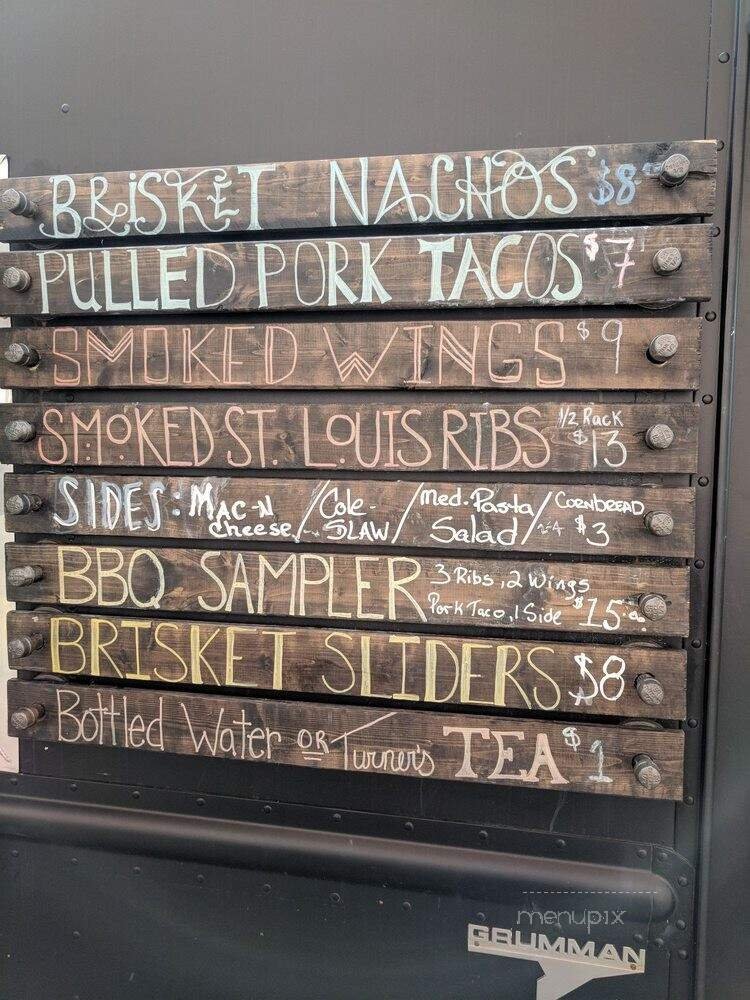 BRISKET NACHOS $8
PULLED PORK TACOS $7
SMOKED WINGS $9
SMOKED ST. LOUIS RIBS 1/2 Rack $13
SIDES: MAC-N Cheese / Cole-SLAW / Med. Pasta Salad / CORNBREAD $3
BBQ SAMPLER 3 Ribs, 2 Wings Pork Taco, 1 Side $15
BRISKET SLIDERS $8
Bottled Water OR Turner's TEA $1
menupix
GRUMMAN